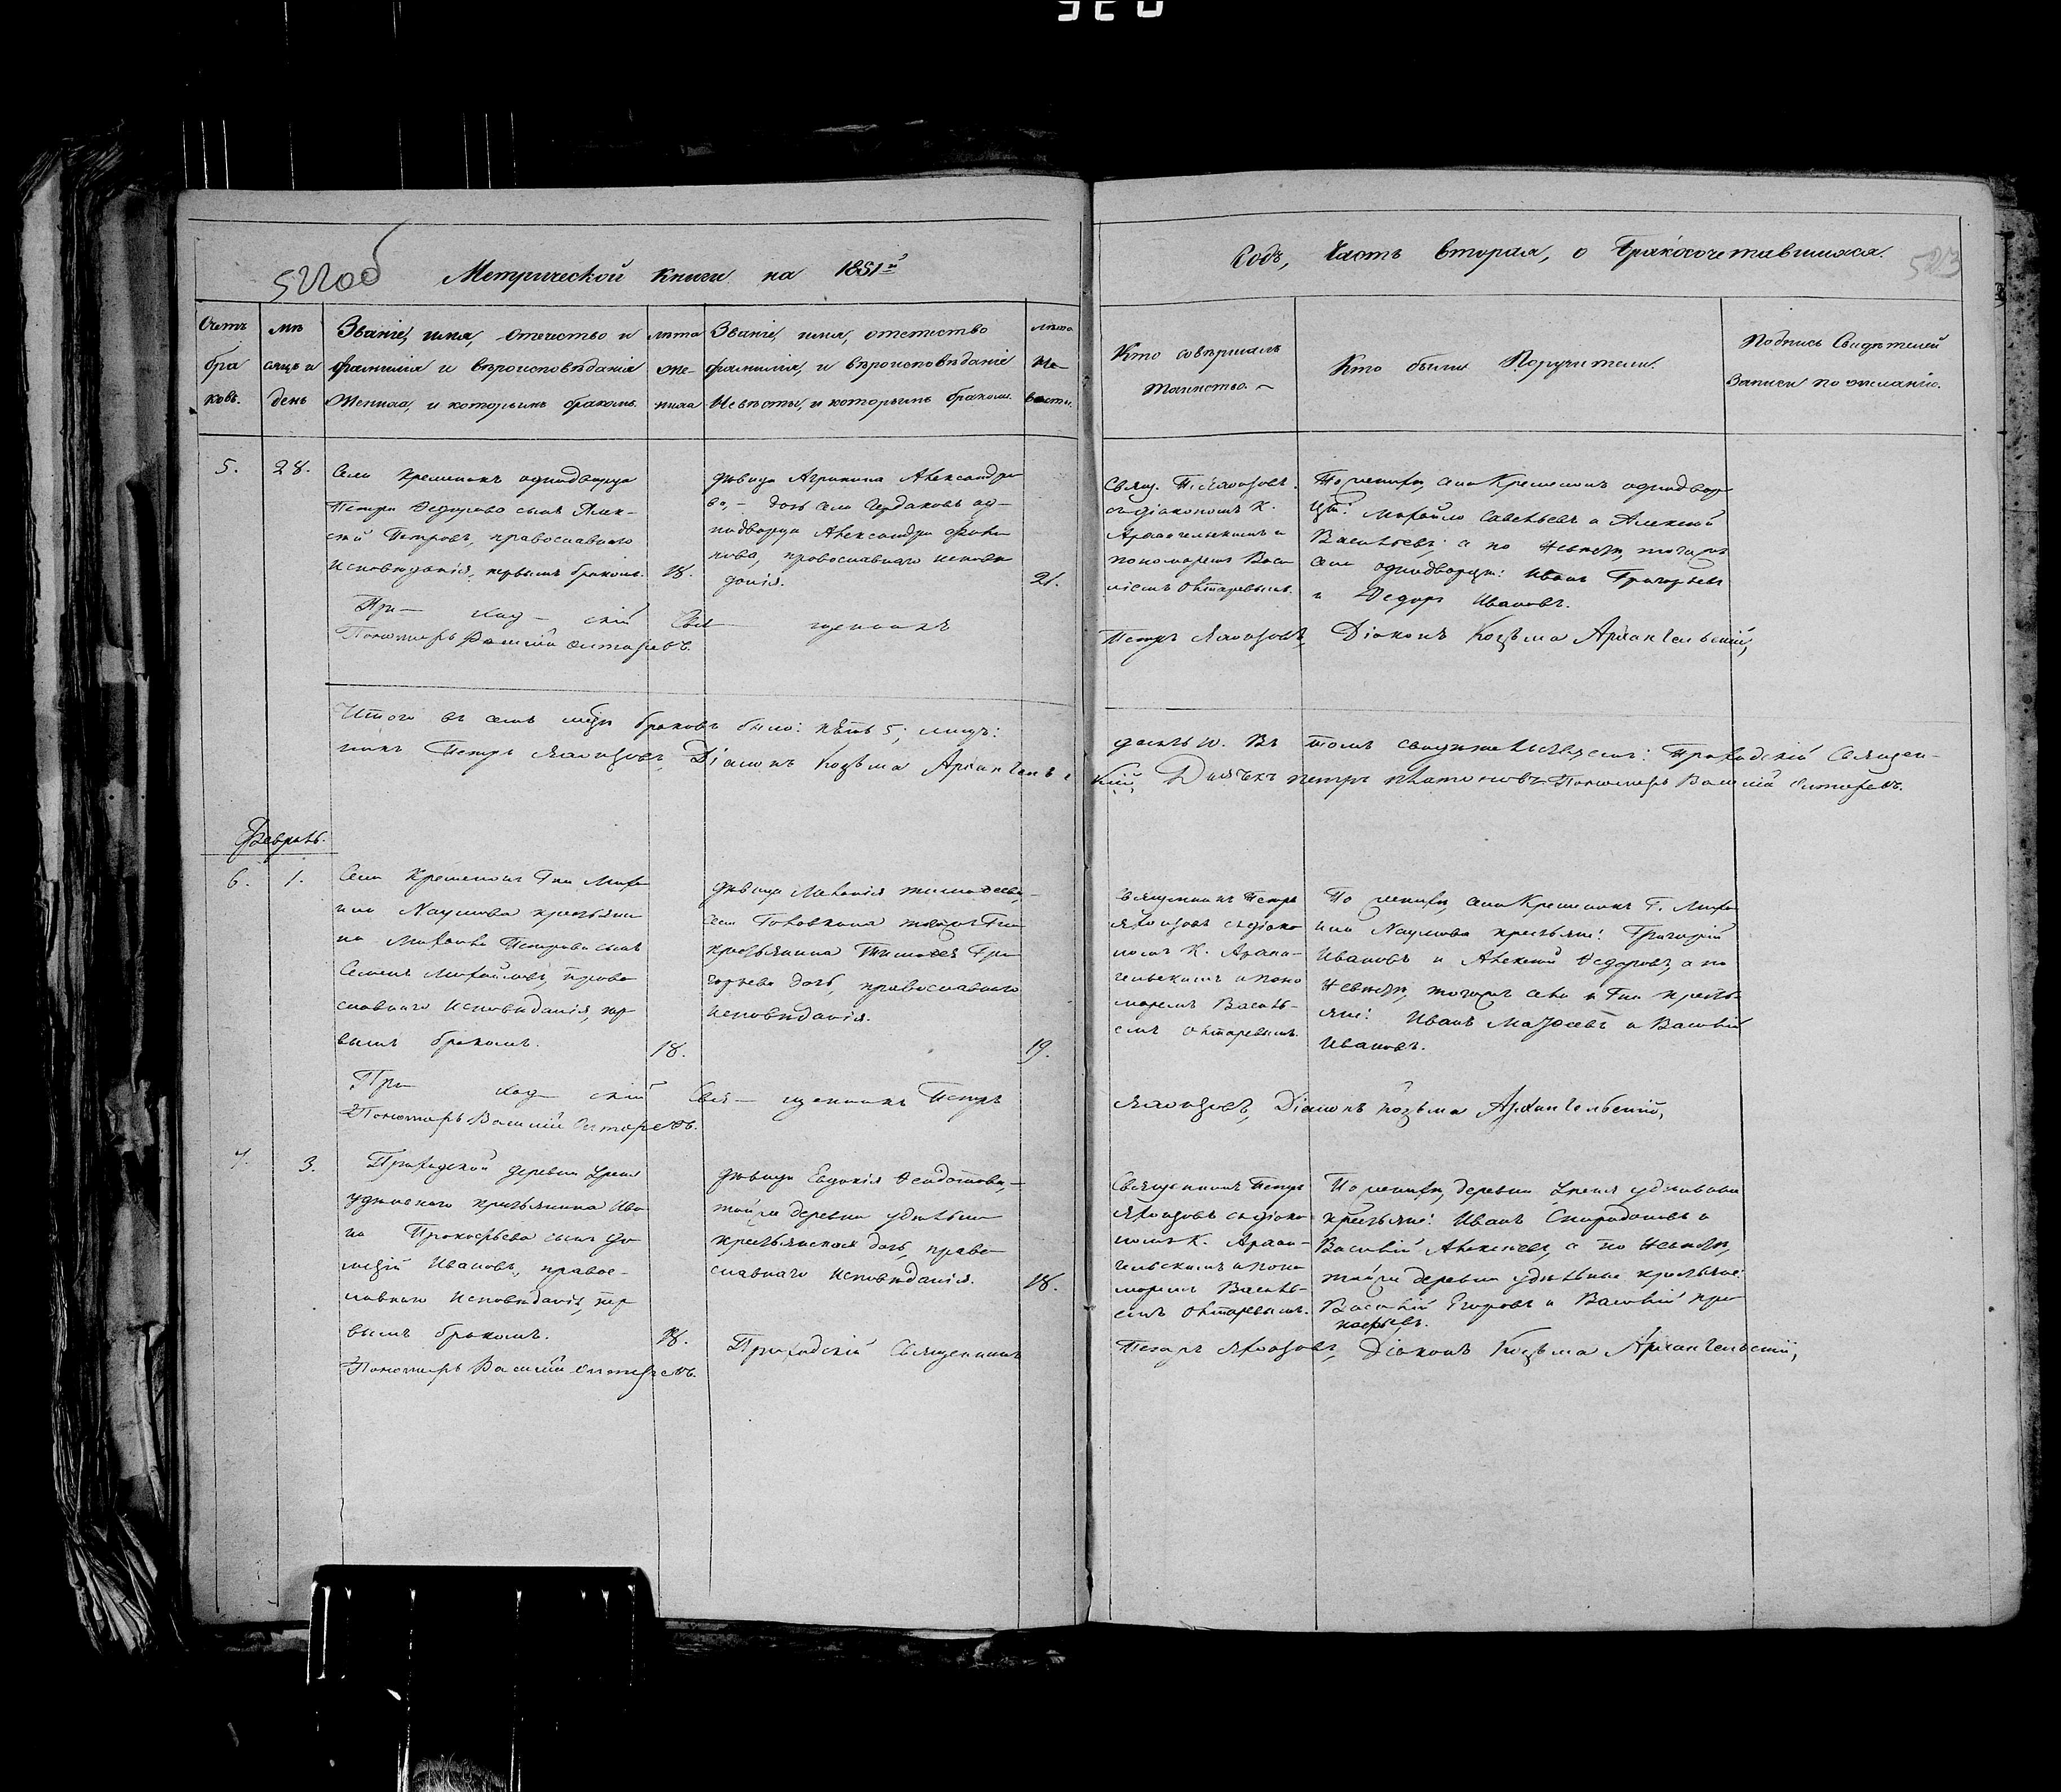 522об Метрической книги на 1851й
Годъ, Часть вторая, о бракосочетавшихся.
523
Счетъ бра ковъ.
Мѣ сяцъ и день
Званіе, имя, отечество и
фамилія и вѣроисповѣданія
Жениха, и которымъ бракомъ.
лѣта же- ниха
Званіе, имя, отчество
фамилія, и вѣроисповѣданіе
Невѣсты, и которымъ бракомъ.
лѣта Не- весты.
Кто совершалъ
таинство.
Кто были Поручители.
Подпись Свидѣтелей
Записи по желанію.
5.
28.
Села Кременокъ однодворца
Петра Федорова сынъ Алек-
сѣй Петровъ, православнаго
исповѣданія, первымъ бракомъ.
18.
дѣвица Агрипина Александро
ва, – дочь села
нодворца Александра
православнаго исповѣ
данія.
21.
Свящ. П. Яхонтовъ
съ діакономъ К.
Архангельскимъ и
пономаремъ Васи
ліемъ Октаревымъ.
По женихѣ, села Кременокъ однодвор
цы: Михайло Савельевъ и Алексѣй
Васильевъ; а по невѣстѣ, тогожъ
села однодворцы: Иванъ Григорьевъ
и Федоръ Ивановъ.
При– ход– скій Свя– щенникъ
Петръ Яхонтовъ, Діаконъ Козьма Архангельскій,
Пономарь Василій Октаревъ.
Итого въ семъ м҃цѣ браковъ было: пять 5; лицъ:
десять 10. Въ томъ свидѣтельствуемъ: Приходскій Священ-
никъ Петръ Яхонтовъ, Діаконъ Козьма Архангельс
кій, Дьячекъ Петръ Платоновъ. Пономарь Василій Октаревъ.
Февраль.
6.
1.
Села Кременокъ Гна Миха
ила Наумова крестьяни
на Михаила Петрова сынъ
Семенъ Михайловъ, право
славнаго исповѣданія, пер
вымъ бракомъ.
18.
дѣвица Меланія Тимофеева, –
села Головкина тогожъ Гна
крестьянина Тимофея Гри
горьева дочь, православнаго
исповѣданія.
19.
Священникъ Петръ
Яхонтовъ съ діако
номъ К. Архан-
гельскимъ и поно
маремъ Василь-
емъ Октаревымъ.
По женихѣ, села Кременокъ Г. Миха
ила Наумова крестьяне: Григорій
Ивановъ и Алексѣй Федоровъ, а по
невѣстѣ, тогожъ села и Гна кресть-
яне: Иванъ Матфеевъ и Василій
Ивановъ.
При– ход– скій Свя– щенникъ Петръ
Яхонтовъ, Діаконъ Козьма Архангельскій,
Пономарь Василій Октаревъ.
7.
3.
Приходской деревни
удѣльнаго крестьянина Ива
на Прокофьева сынъ
Ивановъ, правос-
лавнаго исповѣданія, пер
вымъ бракомъ.
18.
дѣвица Евдокія Феодотова, –
тойже деревни удѣльна
крестьянская дочь, право-
славнаго исповѣданія.
18.
Священникъ Петръ
Яхонтовъ съ діако
номъ К. Архан-
гельскимъ и поно
маремъ Василь-
емъ Октаревымъ.
По женихѣ, деревни удѣльные
крестьяне: Иванъ Спиридоновъ и
Василій Алексѣевъ, а по невѣстѣ,
тойже деревни удѣльные крестьяне
Василій Егоровъ и Василій Про
кофьевъ.
Приходскій Священникъ
Петръ Яхонтовъ, Діаконъ Козьма Архангельскій,
Пономарь Василій Октаревъ.